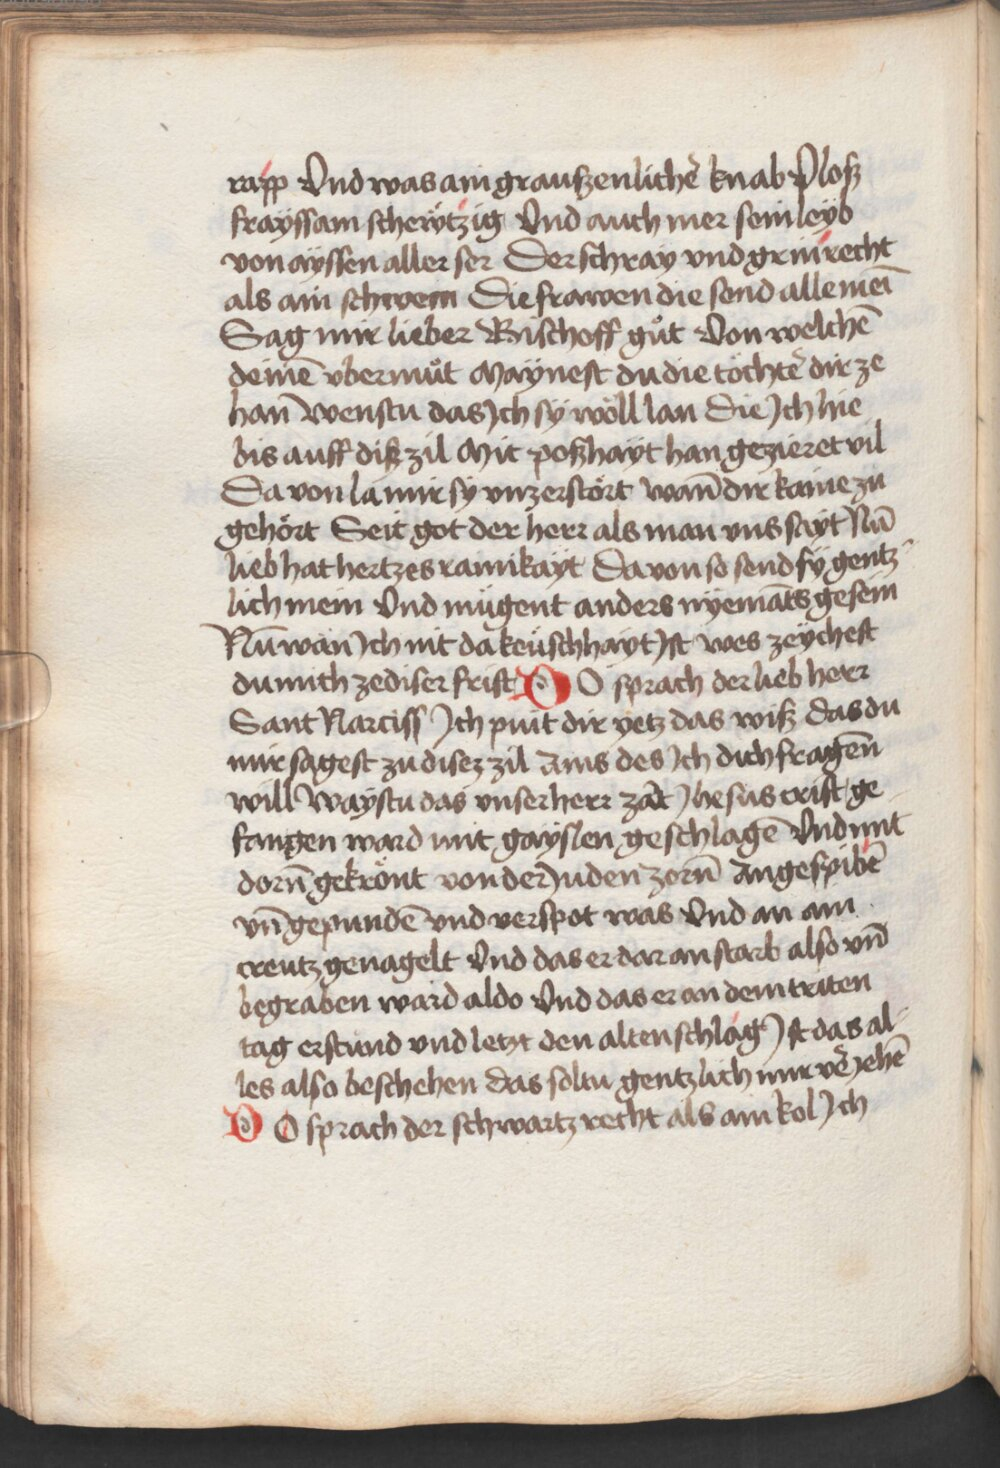 rapp Vnd was ain graussenlichē knab Plosz
frayssam scherẅtzig Vnd auch mer sein leyb
von ayssen aller ser Der schray vnd grin recht
als ain schwein Die frawen die send alle meī
Sag mir lieber Bischoff gůt Von welchē
deinē vbermůt Maynest du die töchtē dir ze
han Wenstu das Jch sy wöll lan Die Jch hie
bis auff disz zil Mit poszhayt han gezieret vil
Da von la mir sy vnzerstört wan̄ dir kaine zu
gehört Seit got der herr als man vns sayt Nū
lieb hat hertzes rainikayt Da von so send sy gentz-
lich mein Vnd mügent anders nyemāts gesein
Nū wān Jch nit da keüschhayt Jst wes zeychest
du mich ze diser frist DO sprach der lieb herr
Sant Narciss Jch puit dir yetz das wisz das du
mir sagest zu disez zil Ains des Jch dich fragen̄
will Waystu das vnser herr zart Jhesus crist ge
fangen ward mit gayslen geschlagē Vnd mit
dorn̄ gekrönt von der Juden zorn̄ Angespibē
vn̄ gepundē vnd verspot was Vnd an ain
creutz genagelt Vnd das er dar an starb also vn̄
begraben ward aldo Vnd das er an dem triten
tag erstund vnd letzt den alten schlag Jst das al-
les also beschehen das soltu gentzlich mir vējehē
DO sprach der schwartz recht als ain kol Jch